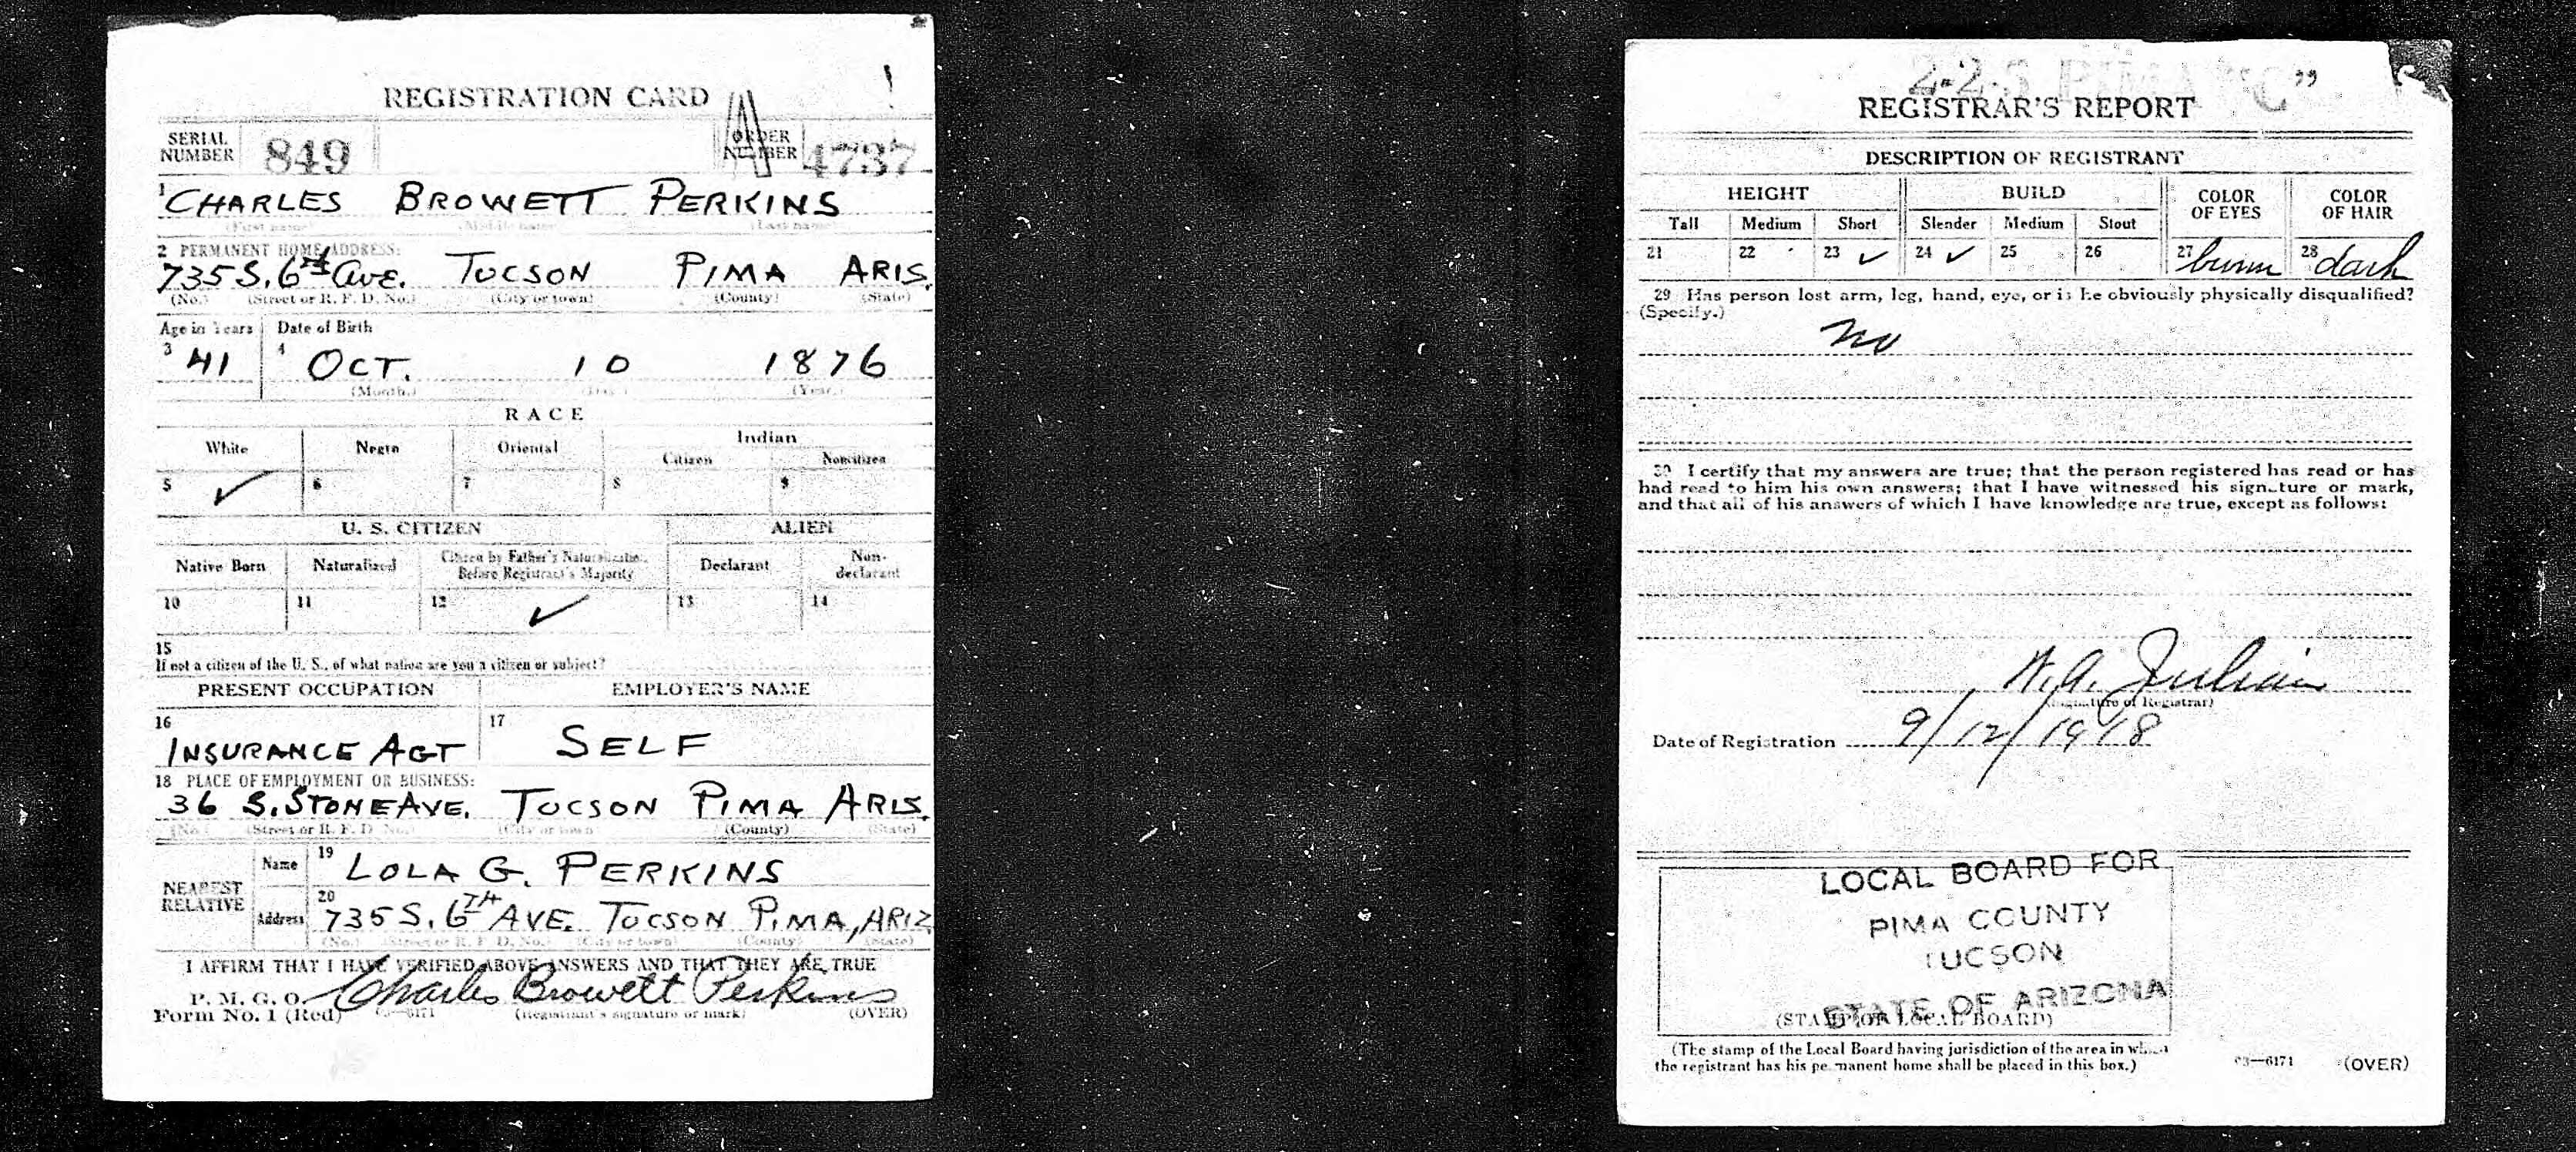 REGISTRATION CARD
SERIAL NUMBER 849 ORDER NUMBER 4737
A
1 CHARLES BROWETT PERKINS
(First name) (Middle name) (Last name)
2 PERMANENT HOME ADDRESS:
735 S. 6th Ave. TUCSON PIMA ARIS.
(No.) (Street or R. F. D. No.) (City or town) (County) (State)
Age in Years Date of Birth
3 41 4 OCT. 10 1876
(Month.) (Day.) (Year.)
RACE
White Negro Oriental Indian
Citizen Noncitizen
5 ✓ 6 7 8 9
U. S. CITIZEN ALIEN
Native Born Naturalized Citizen by Father's Naturalization Before Registrant's Majority Declarant Non-declarant
10 11 12 ✓ 13 14
15
If not a citizen of the U. S., of what nation are you a citizen or subject?
PRESENT OCCUPATION EMPLOYER'S NAME
16 INSURANCE AGT 17 SELF
18 PLACE OF EMPLOYMENT OR BUSINESS:
36 S. STONE AVE. TUCSON PIMA ARIS.
(No.) (Street or R. F. D. No.) (City or town) (County) (State)
NEAREST RELATIVE
Name 19 LOLA G. PERKINS
Address 20 735 S. 6TH AVE. TUCSON PIMA, ARIZ
(No.) (Street or R. F. D. No.) (City or town) (County) (State)
I AFFIRM THAT I HAVE VERIFIED ABOVE ANSWERS AND THAT THEY ARE TRUE
P. M. G. O. Charles Browett Perkins
Form No. 1 (Red) 03—6171 (Registrant's signature or mark) (OVER)
2-2-5 PIMA "C"
REGISTRAR'S REPORT
DESCRIPTION OF REGISTRANT
HEIGHT BUILD COLOR OF EYES COLOR OF HAIR
Tall Medium Short Slender Medium Stout
21 22 23 ✓ 24 ✓ 25 26 27 brown 28 dark
29 Has person lost arm, leg, hand, eye, or is he obviously physically disqualified?
(Specify.)
no
30 I certify that my answers are true; that the person registered has read or has
had read to him his own answers; that I have witnessed his signature or mark,
and that all of his answers of which I have knowledge are true, except as follows:
Julian
(Signature of Registrar)
Date of Registration 9/12/1918
LOCAL BOARD FOR
PIMA COUNTY
TUCSON
STATE OF ARIZONA
(STAMP OF LOCAL BOARD)
(The stamp of the Local Board having jurisdiction of the area in which
the registrant has his permanent home shall be placed in this box.)
03—6171 (OVER)